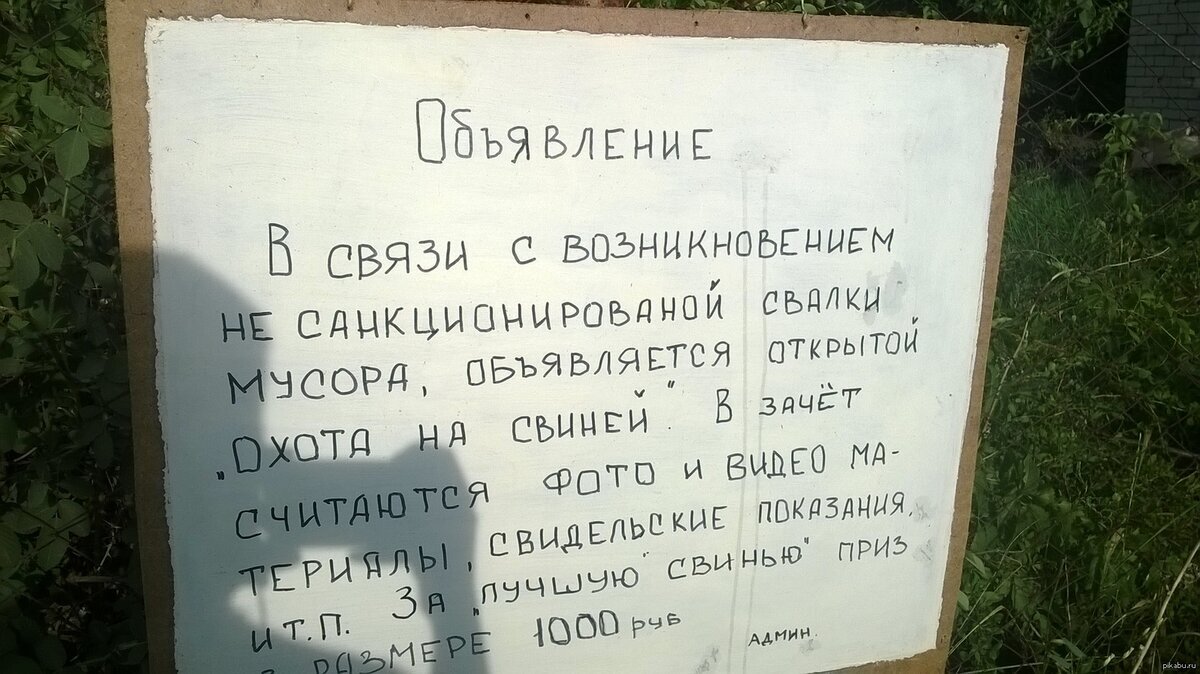 Объявление
В связи с возникновением
не санкционированой свалки
мусора, объявляется открытой
„Охота на свиней". В зачёт
считаются фото и видео ма-
териялы, свидельские показания.
и т.п. За „лучшую" "свинью" приз
в размере 1000 руб
админ.
pikabu.ru